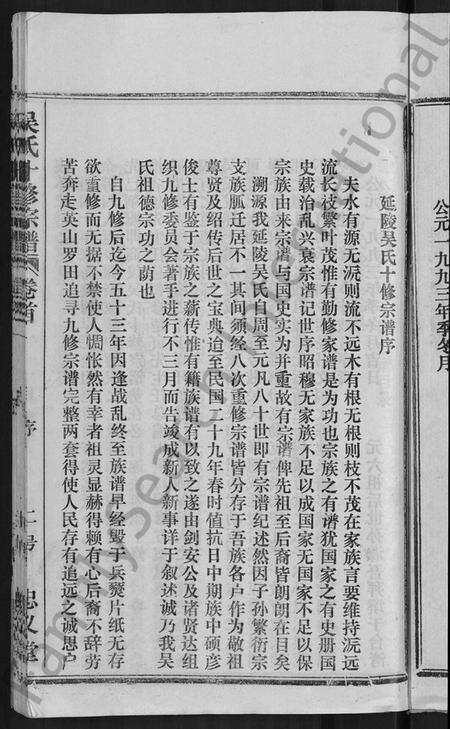 公元一九九三年季冬月
延陵吴氏十修宗谱序
夫水有源无派则流不远木有根无根则枝不茂在家族言要维持沅远
流长枝繁叶茂惟有勤修家谱是为功也宗族之有谱犹国家之有史册国
史载治乱兴衰宗谱记世序昭穆无家族不足以成国家无国家不足以保
宗族由来宗谱与国史实为并重故有宗谱俾先祖至后裔皆朗朗在目矣
溯源我延陵吴氏自周至元凡八十世即有宗谱纪述然因子孙繁衍宗
支族胍迁居不一其间须经八次重修宗谱皆分存于吾族各户作为敬祖
尊贤及绍传后世之宝典迨至民国二十九年春时值抗日中期族中硕彦
俊士有鉴于宗族之薪传惟有籍族谱有以致之遂由剑安公及诸贤达组
织九修委员会著手进行不三月而告竣成新人新事详于叙述诚乃我吴
氏祖德宗功之荫也
自九修后迄今五十三年因逢战乱终至族谱早经毁于兵燹片纸无存
欲重修而无据不禁使人惆怅然有幸者祖灵显赫得赖有心后裔不辞劳
苦奔走英山罗田追寻九修宗谱完整两套得使人民存有追远之诚恩户
吴氏十修宗谱 卷首 序 二号 忠义堂